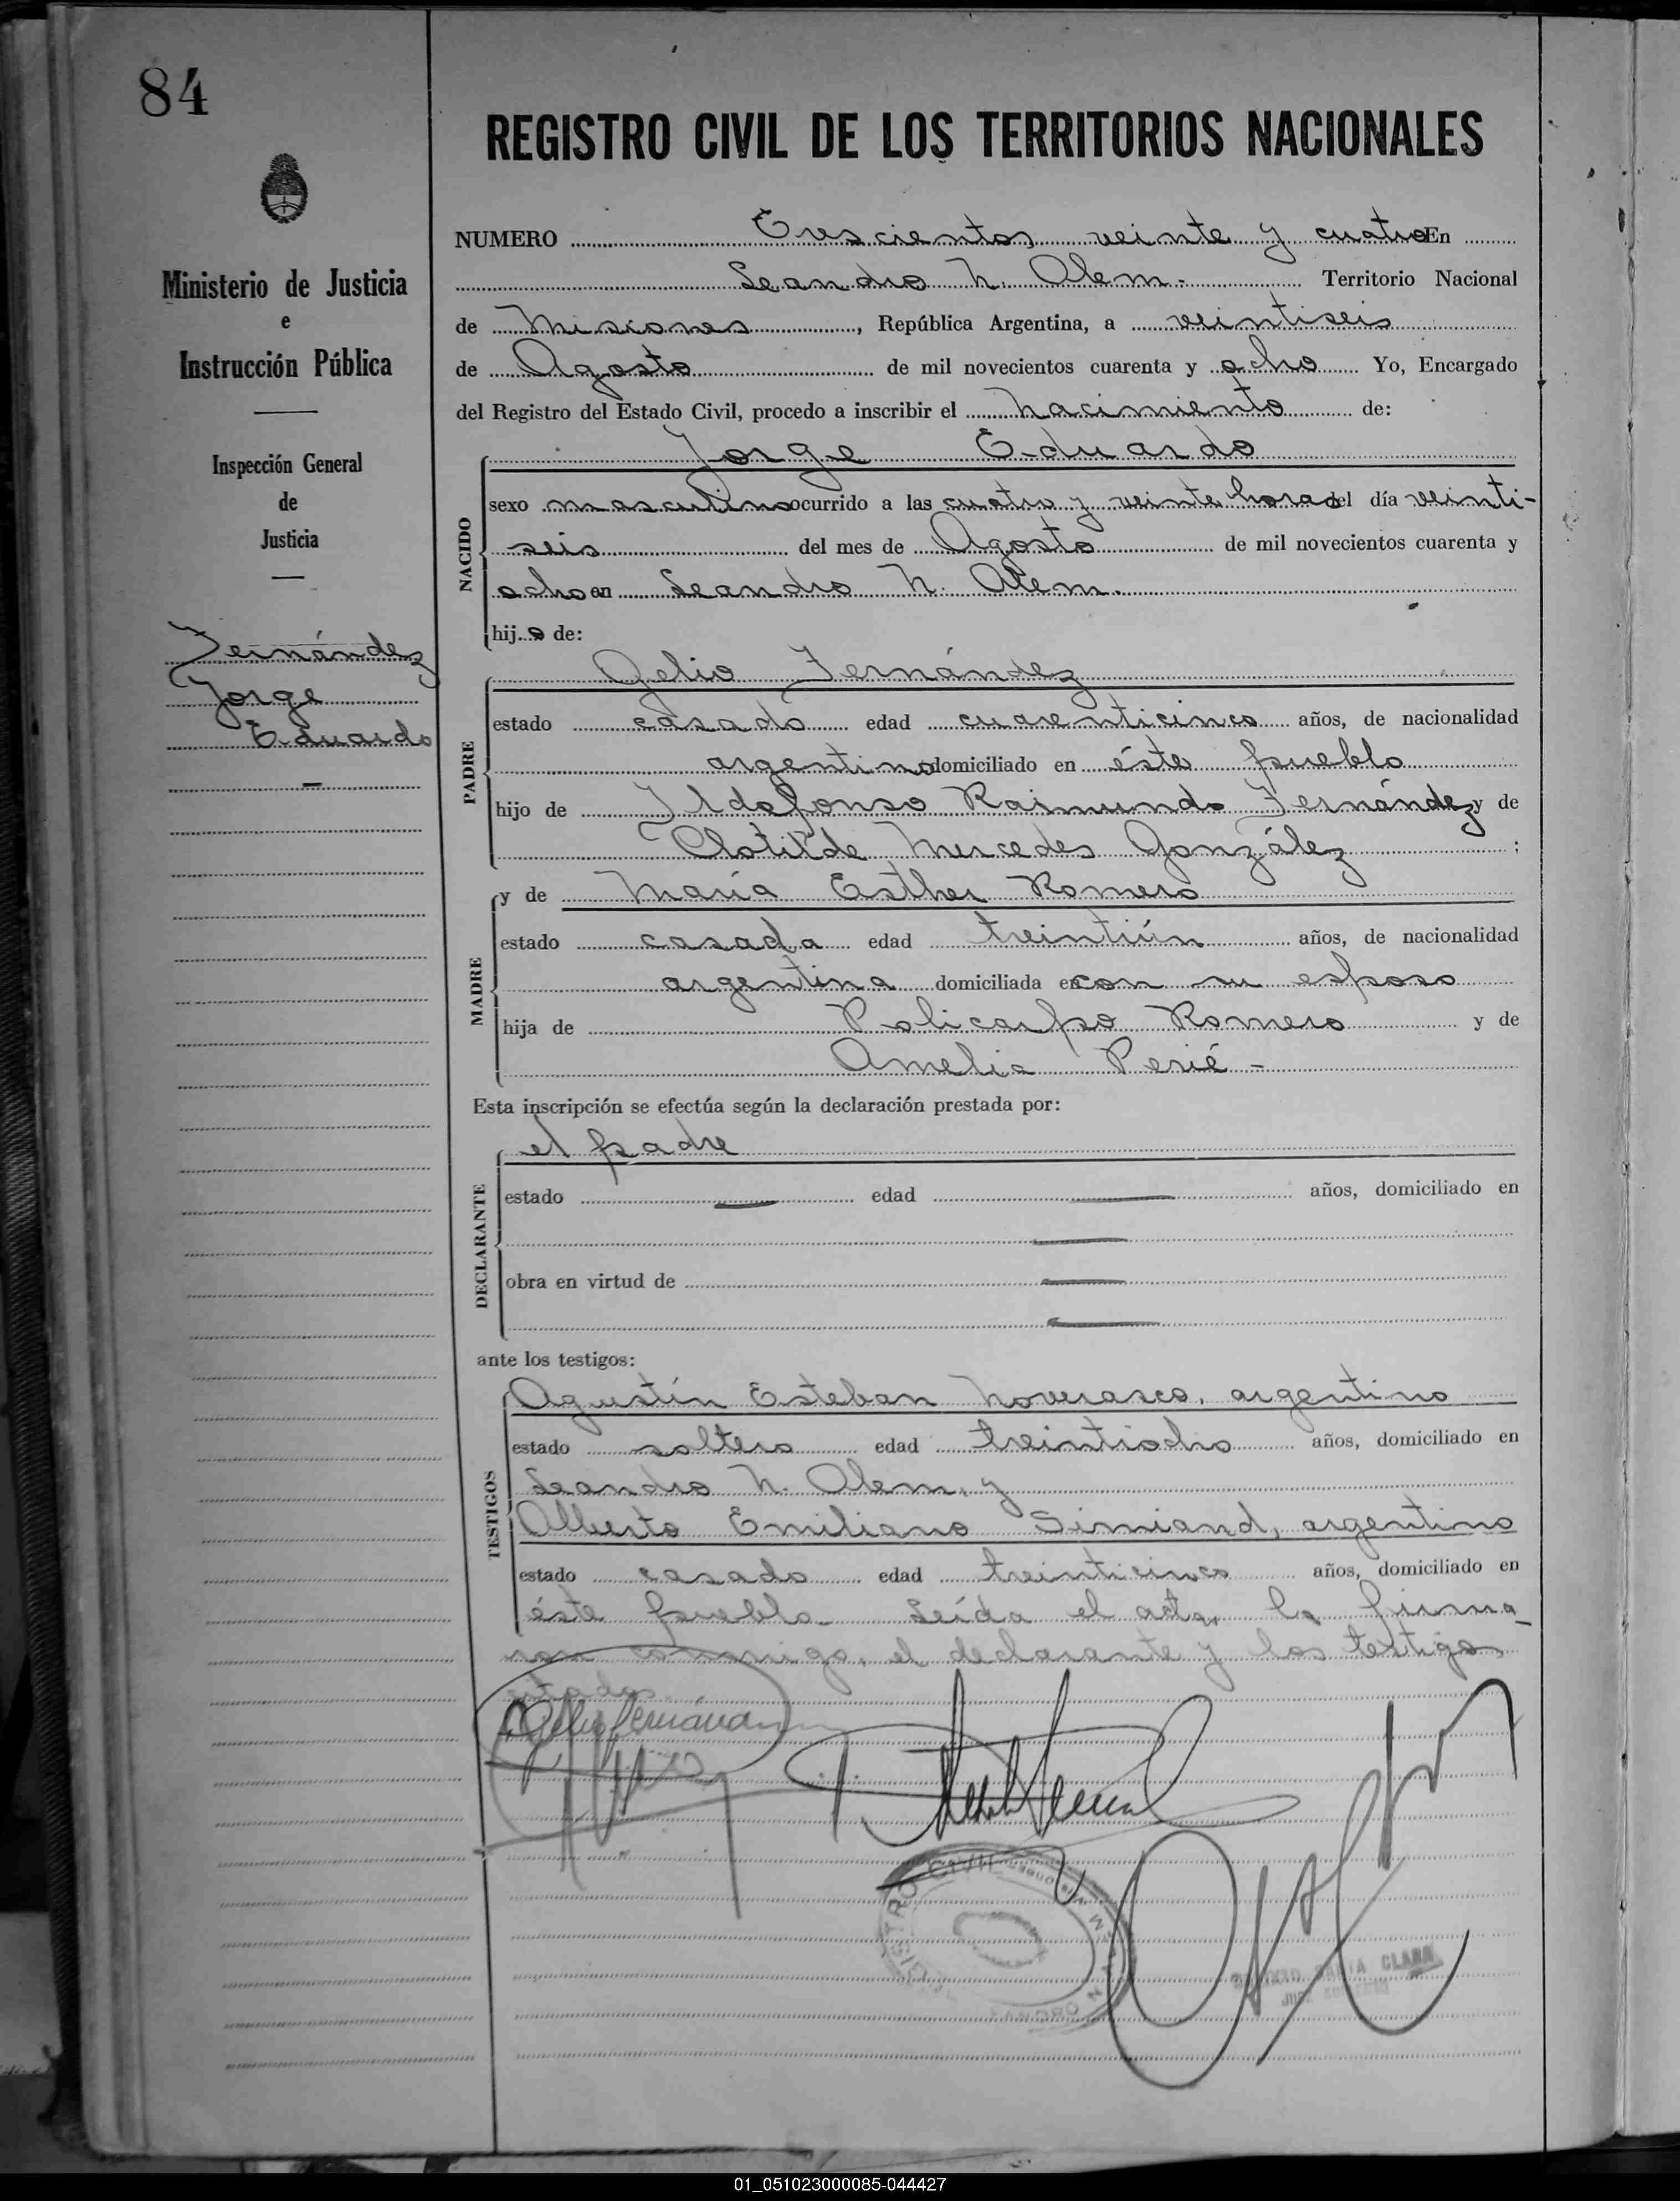 84
REGISTRO CIVIL DE LOS TERRITORIOS NACIONALES
Ministerio de Justicia
e
Instrucción Pública
Inspección General
de
Justicia
Fernández
Jorge
Eduardo
NUMERO Trescientos veinte y cuatro En
Leandro N. Alem.- Territorio Nacional
de Misiones, República Argentina, a veintiseis
de Agosto de mil novecientos cuarenta y ocho Yo, Encargado
del Registro del Estado Civil, procedo a inscribir el Nacimiento de:
Jorge Eduardo
NACIDO
sexo masculino ocurrido a las cuatro y veinte horas del día veinti-
seis del mes de Agosto de mil novecientos cuarenta y
ocho en Leandro N. Alem.
hijo de:
Gelio Fernández
PADRE
estado casado edad cuarenticinco años, de nacionalidad
argentino domiciliado en éste pueblo
hijo de Ildefonso Raimundo Fernández y de
Clotilde Mercedes González ;
y de María Esther Romero
MADRE
estado casada edad treintiún años, de nacionalidad
argentina domiciliada en con su esposo
hija de Policarpo Romero y de
Amelia Perié -
Esta inscripción se efectúa según la declaración prestada por:
el padre
DECLARANTE
estado edad años, domiciliado en
obra en virtud de
ante los testigos:
TESTIGOS
Agustín Esteban Noverasco, argentino
estado soltero edad treintiocho años, domiciliado en
Leandro N. Alem, y
Alberto Emiliano Simiand, argentino
estado casado edad treinticinco años, domiciliado en
éste pueblo. Leída el acta, la firma-
ron conmigo, el declarante y los testigos
citados.
REGISTRO CIVIL
SANTA CLARA
01_051023000085-044427